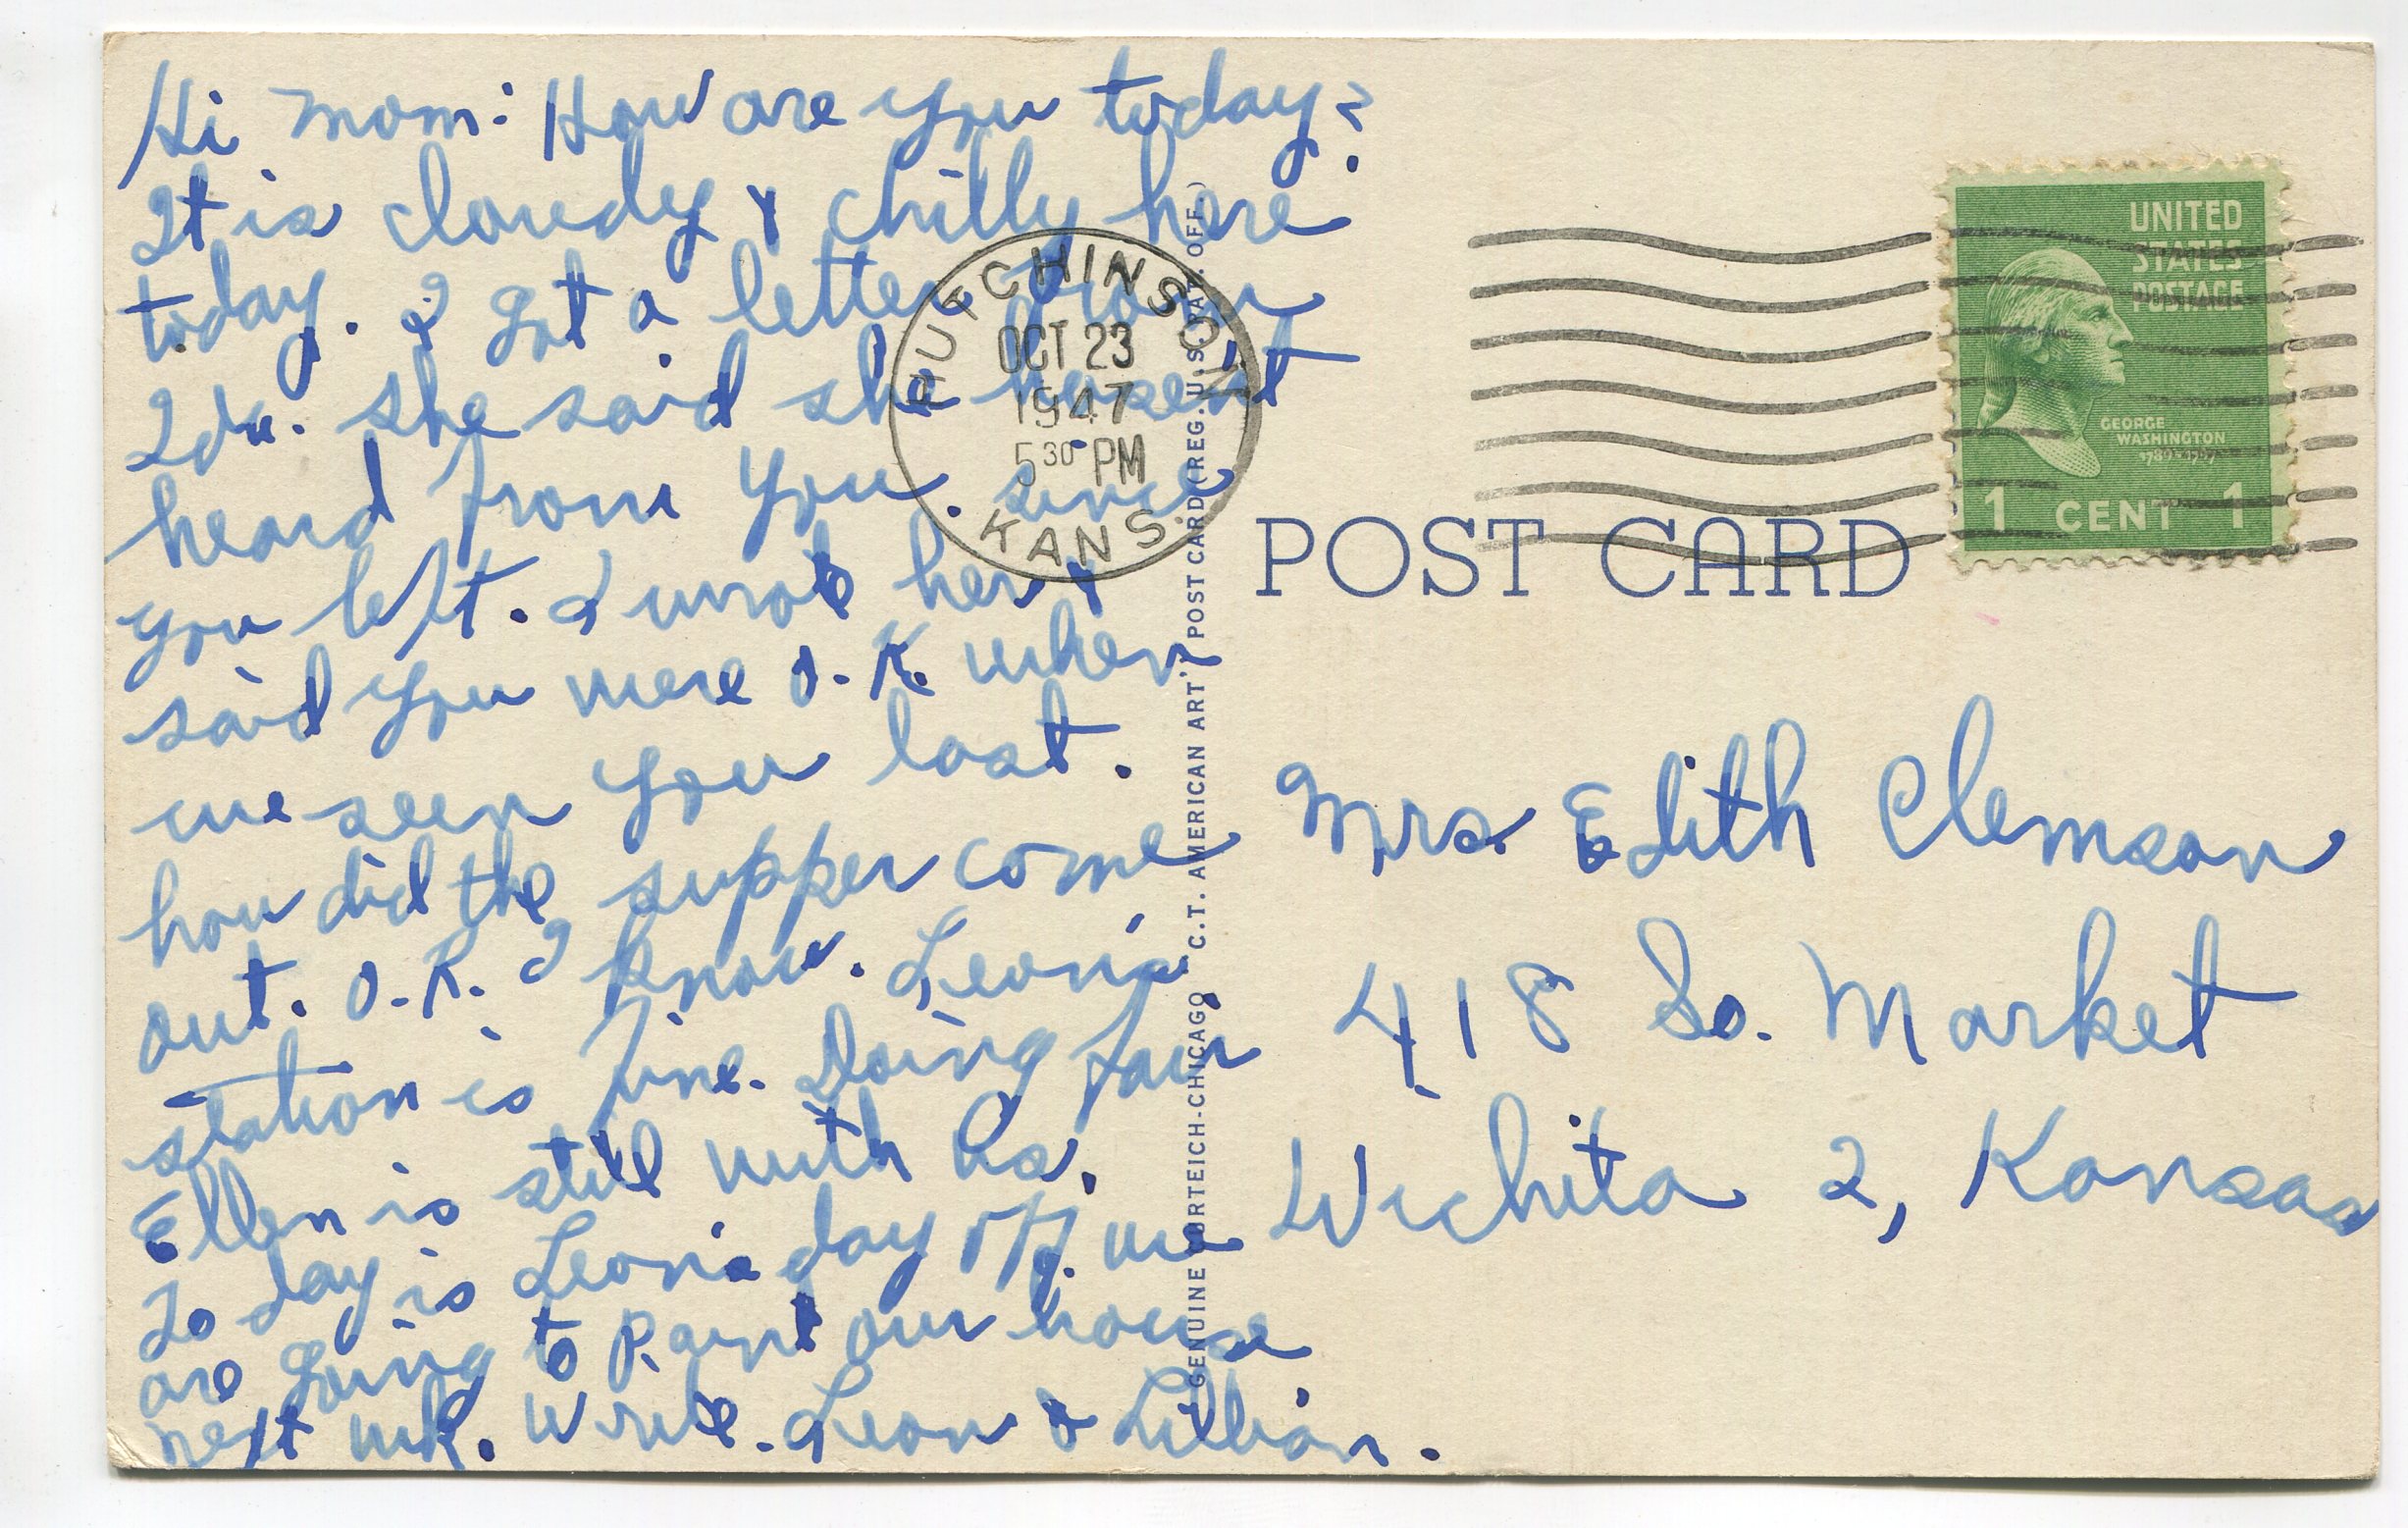 Hi mom: How are you today?
It is cloudy & chilly here
today. I got a letter from
Ida. she said she hasent
heard from you. since
you left. I wrote her &
said you were O.K. when
we seen you last.
how did the supper come
out. O.K. I know. Leon's
station is fine. Doing fair
Ellen is still with us.
To day is Leon's day off. we
are going to paint our house
next wk. Write. Leon & Lillian.
HUTCHINSON
OCT 23
1947
5 30 PM
KANS.
GENUINE CURTEICH-CHICAGO "C.T. AMERICAN ART" POST CARD (REG. U.S. PAT. OFF.)
POST CARD
UNITED
STATES
POSTAGE
GEORGE
WASHINGTON
1789-1797
1 CENT 1
Mrs. Edith Clemson
418 So. Market
Wichita 2, Kansas